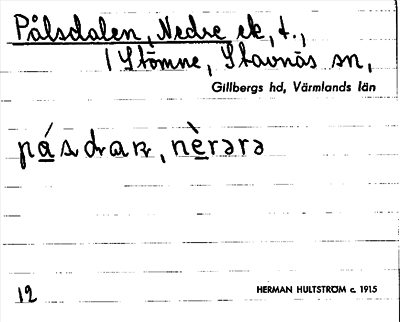 Pålsdalen, Nedre ek, t.,
1 Stömne, Stavnäs sn,
Gillbergs hd, Värmlands län
pásdran, nèrərə
12
HERMAN HULTSTRÖM c. 1915